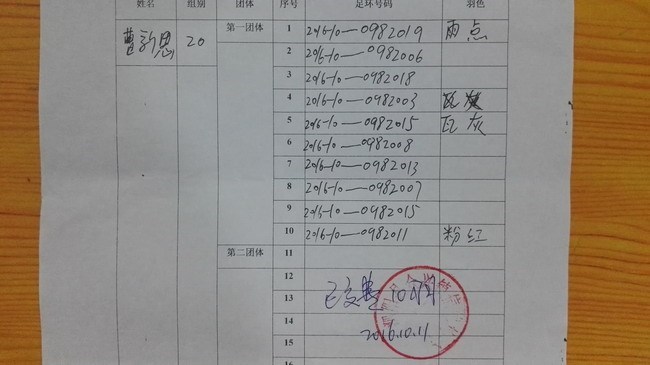 姓名 组别 团体 序号 足环号码 羽色
20 第一团体 1 2016-10-0982019 雨点
2 2016-10-0982006
3 2016-10-0982018
4 2016-10-0982003
5 2016-10-0982015 瓦灰
6 2016-10-0982008
7 2016-10-0982013
8 2016-10-0982007
9 2016-10-0982015
10 2016-10-0982011 粉红
第二团体 11
12
13 已交
14 2016.10.11
15
16